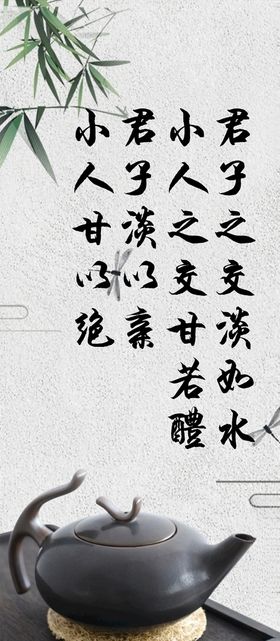 君子之交淡如水
小人之交甘若醴
君子淡以亲
小人甘以绝